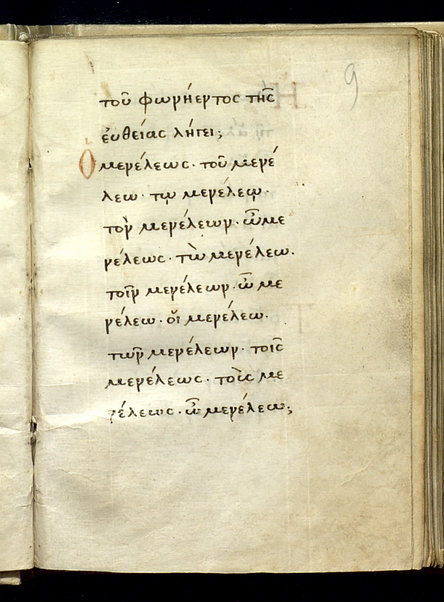 9
τοῦ φωνήεντος τῆς
εὐθείας λήγει;
Ὁ μενέλεως· τοῦ μενέ
λεω· τῳ μενέλεῳ·
τὸν μενέλεων· ὦ με
νέλεως· τὼ μενέλεω·
τοῖν μενέλεῳν· ὦ με
νέλεω· οἱ μενέλεῳ·
τῶν μενέλεων· τοῖς
μενέλεῳς· τοὺς με
νέλεως· ὦ μενέλεῳ;